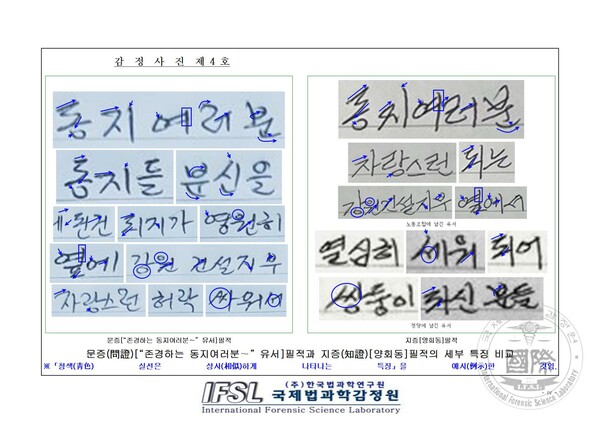 감 정 사 진 제 4 호
동지 여러분
동지들 분신을
퇴지가 영원히
옆에 강원 건설지부
자랑스런 허락 싸워서
동지여러분
자랑스런 되는
강원건설지부 옆에서
노동조합에 남긴 유서
열심히 세워 되어
쌍둥이 하신 분들
정당에 남긴 유서
문증["존경하는 동지여러분~" 유서]필적
지증[양회동]필적
문증(問證)["존경하는 동지여러분~" 유서]필적과 지증(知證)[양회동]필적의 세부 특징 비교
※「청색(青色) 실선은 상사(相似)하게 나타나는 특징」을 예시(例示)한 것임.
IFSL (주)한국법과학연구원
국제법과학감정원
International Forensic Science Laboratory
國際
International Forensic Science Laboratory